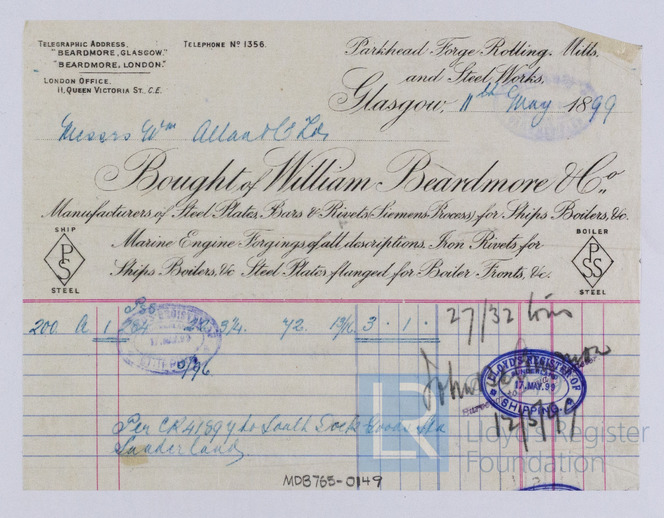 TELEGRAPHIC ADDRESS,
"BEARDMORE, GLASGOW."
"BEARDMORE, LONDON."
LONDON OFFICE.
11, QUEEN VICTORIA ST., E.C.
TELEPHONE No 1356.
Parkhead Forge Rolling Mills,
and Steel Works,
Glasgow, 11th May 1899
Messrs Wm Allan & Co Ltd
Bought of William Beardmore & Co.,
Manufacturers of Steel Plates, Bars & Rivets (Siemens Process) for Ships Boilers, &c.
Marine Engine Forgings of all descriptions. Iron Rivets for
Ships Boilers &c Steel Plates flanged for Boiler Fronts, &c.
SHIP
PSS
STEEL
BOILER
PSS
STEEL
200 A 1 72 13/16 3 . 1 .
27/32
LLOYD'S REGISTER OF
17.MAY.99
SHIPPING
17.MAY.99
12/5/99
Per CR 41894 to South Dock Goods Sta
Sunderland
LR
Lloyd's Register
Foundation
MDB765-0149